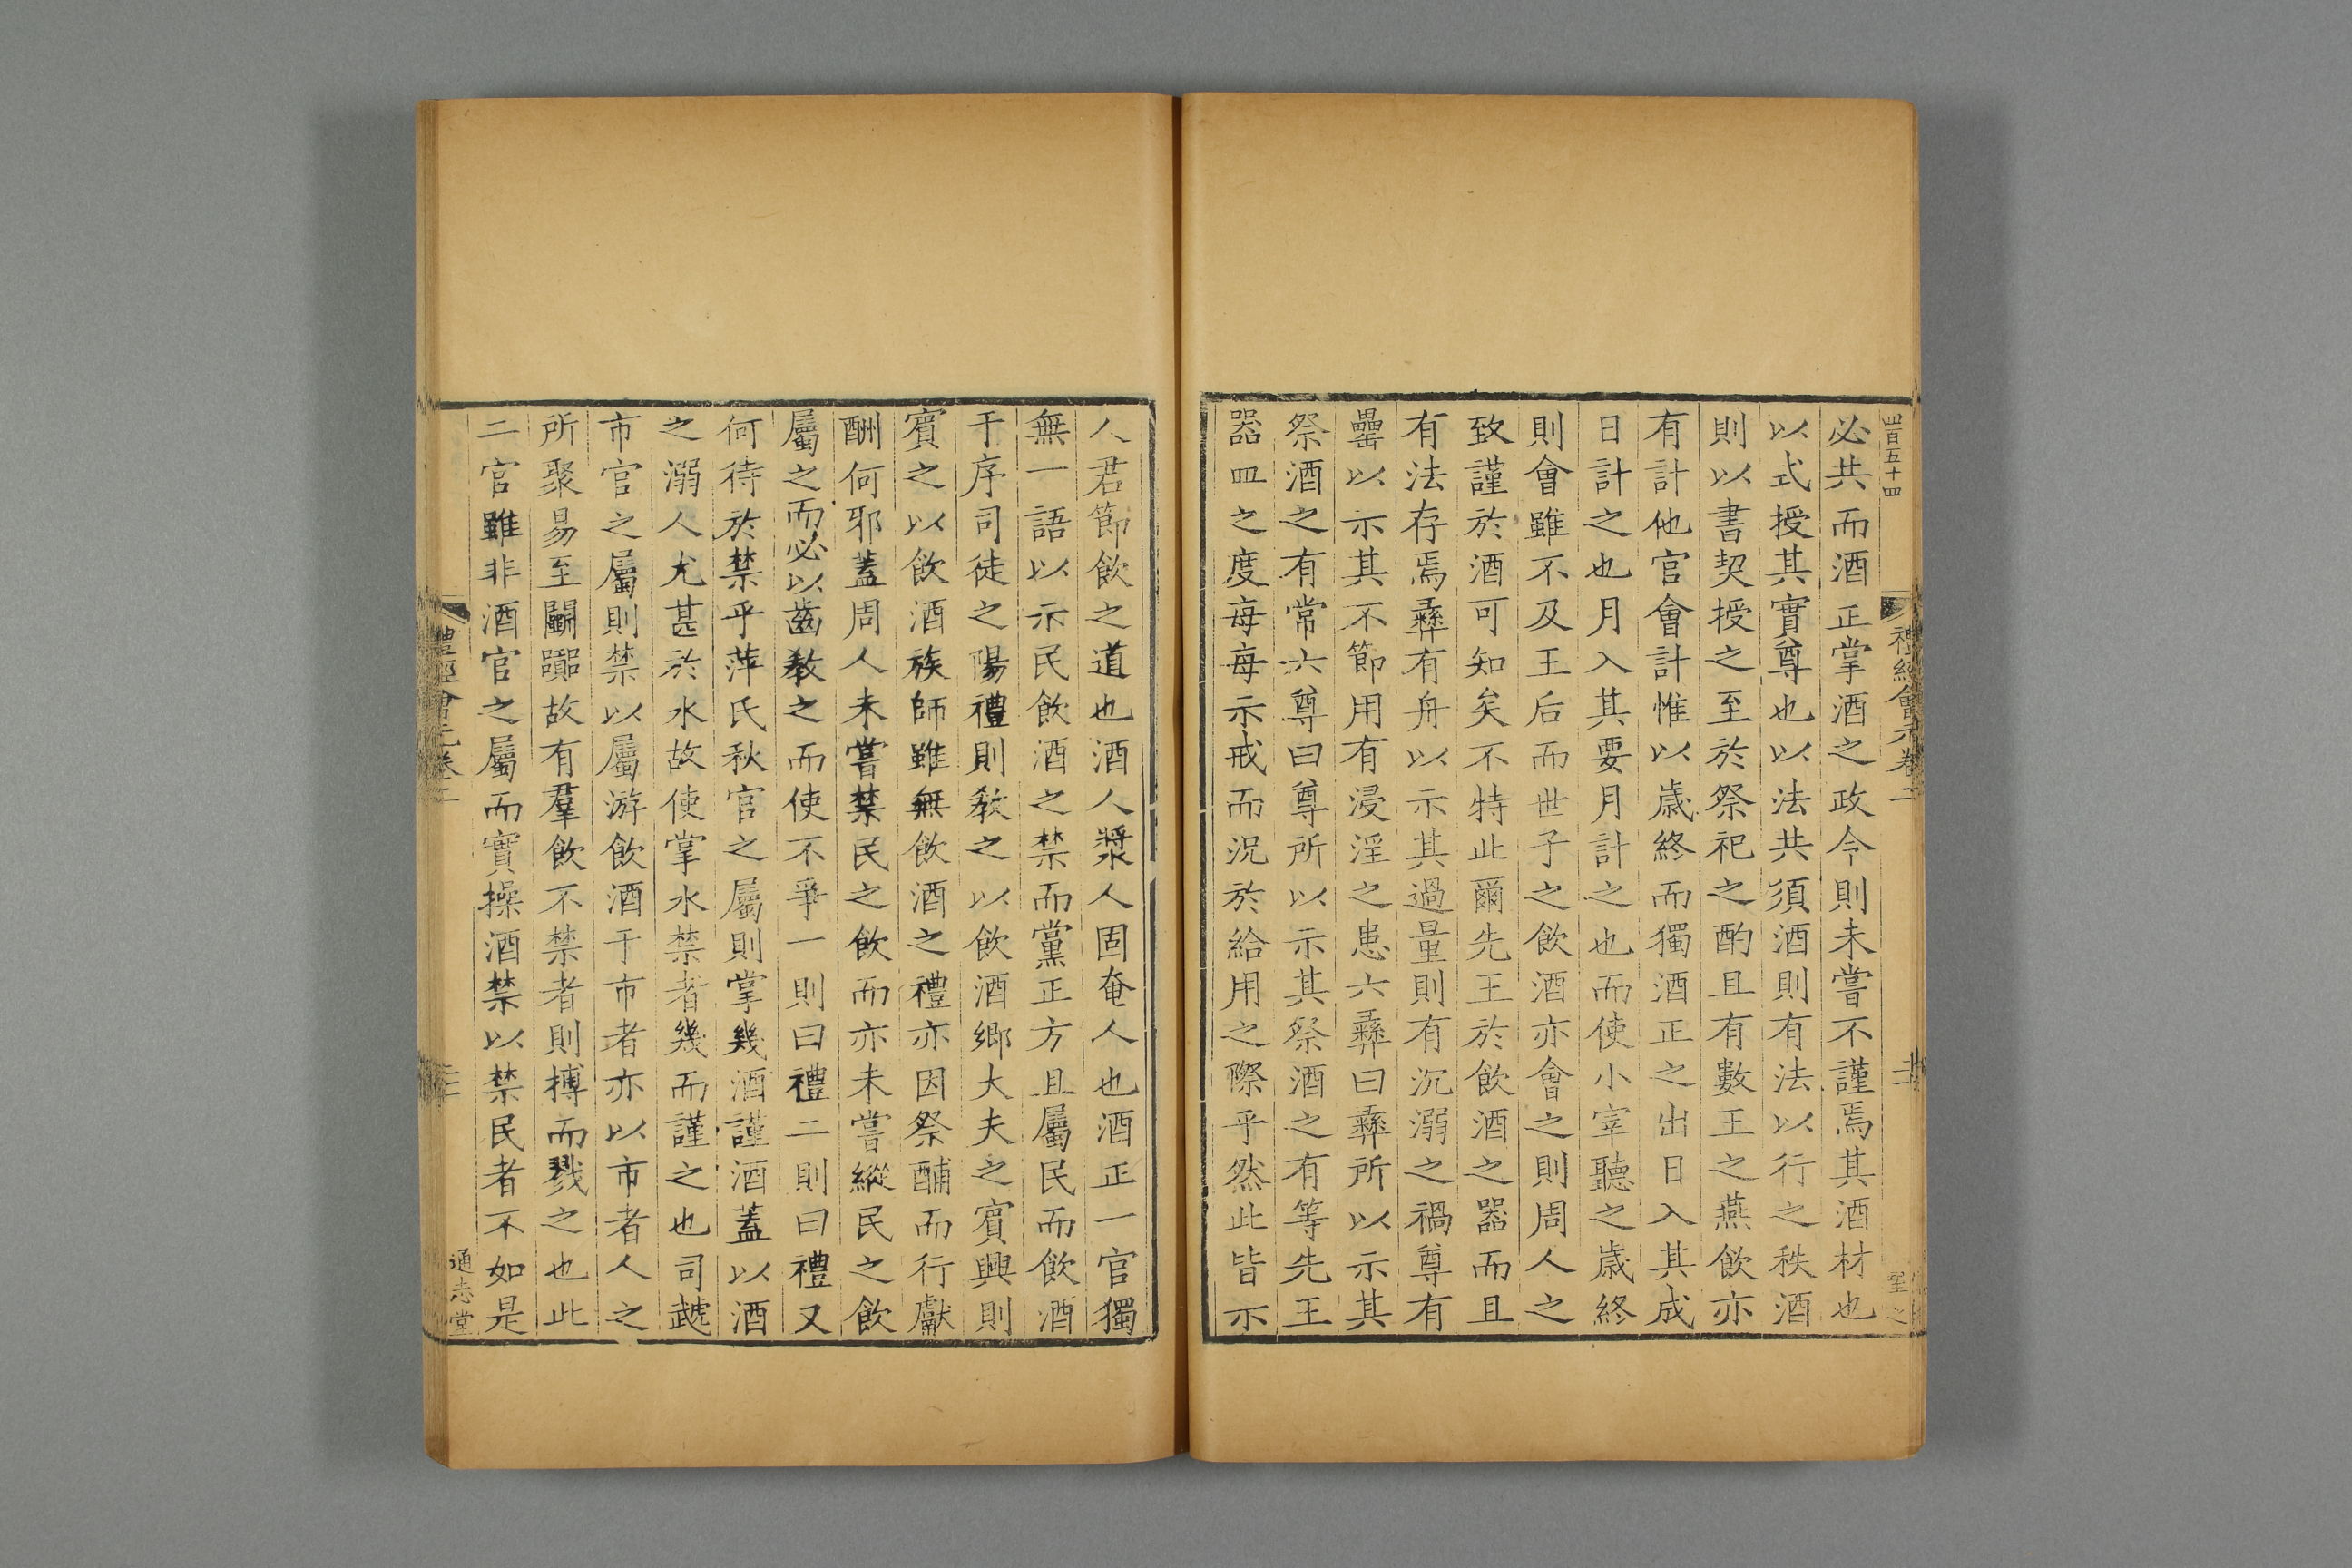 必共而酒正掌酒之政令則未嘗不謹焉其酒材也
以式授其實尊也以法共須酒則有法以行之秩酒
則以書契授之至於祭祀之酌且有數王之燕飲亦
有計他官會計惟以歲終而獨酒正之出日入其成
日計之也月入其要月計之也而使小宰聽之歲終
則會雖不及王后而世子之飲酒亦會之則周人之
致謹於酒可知矣不特此爾先王於飲酒之器而且
有法存焉彞有舟以示其過量則有沉溺之禍尊有
罍以示其不節用有浸淫之患六彞曰彞所以示其
祭酒之有常六尊曰尊所以示其祭酒之有等先王
器皿之度每每示戒而況於給用之際乎然此皆示
人君節飲之道也酒人漿人固奄人也酒正一官獨
無一語以示民飲酒之禁而黨正方且屬民而飲酒
于序司徒之陽禮則教之以飲酒鄉大夫之賓興則
賓之以飲酒族師雖無飲酒之禮亦因祭酺而行獻
酬何邪蓋周人未嘗禁民之飲而亦未嘗縱民之飲
屬之而必以齒教之而使不爭一則曰禮二則曰禮又
何待於禁乎萍氏秋官之屬則掌幾酒謹酒蓋以酒
之溺人尤甚於水故使掌水禁者幾而謹之也司虣
市官之屬則禁以屬游飲酒于市者亦以市者人之
所聚易至鬭囂故有羣飲不禁者則搏而戮之也此
二官雖非酒官之屬而實操酒禁以禁民者不如是
禮經會元卷二
通志堂